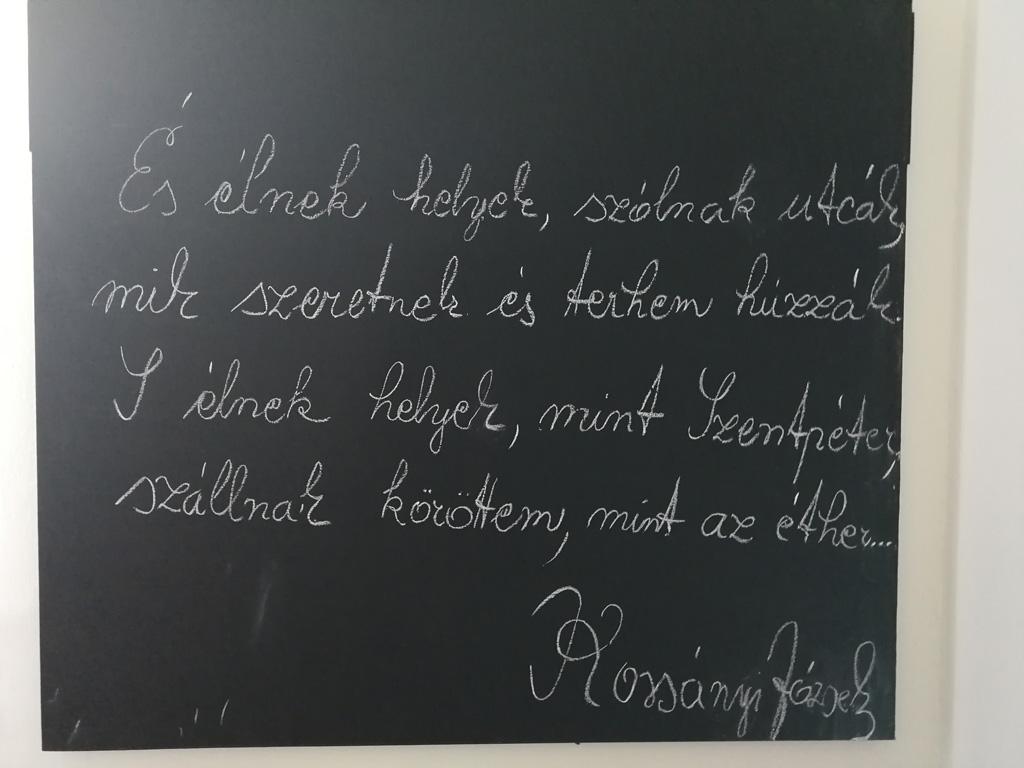 És élnek helyek, szólnak utcák,
mik szeretnek és terhem húzzák.
S élnek helyek, mint Szentpéter,
szállnak köröttem, mint az éther...
Rossányi József